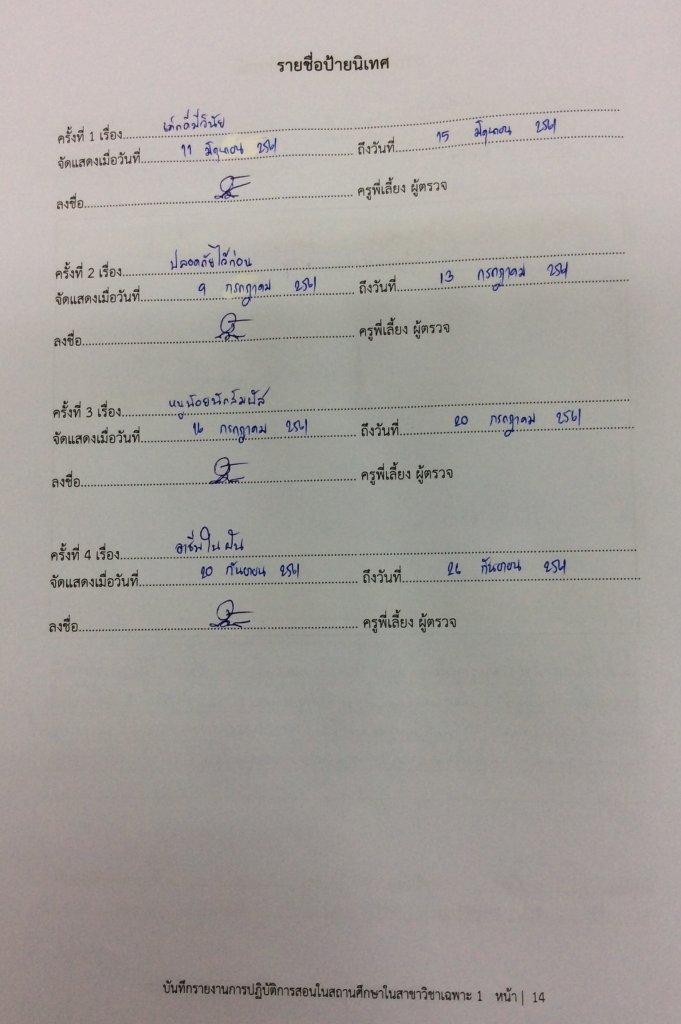 รายชื่อป้ายนิเทศ
ครั้งที่ 1 เรื่อง เด็กดีมีวินัย
จัดแสดงเมื่อวันที่ 11 มิถุนายน 2561 ถึงวันที่ 15 มิถุนายน 2561
ลงชื่อ ครูพี่เลี้ยง ผู้ตรวจ
ครั้งที่ 2 เรื่อง ปลอดภัยไว้ก่อน
จัดแสดงเมื่อวันที่ 9 กรกฎาคม 2561 ถึงวันที่ 13 กรกฎาคม 2561
ลงชื่อ ครูพี่เลี้ยง ผู้ตรวจ
ครั้งที่ 3 เรื่อง หนูน้อยนักสัมผัส
จัดแสดงเมื่อวันที่ 16 กรกฎาคม 2561 ถึงวันที่ 20 กรกฎาคม 2561
ลงชื่อ ครูพี่เลี้ยง ผู้ตรวจ
ครั้งที่ 4 เรื่อง อาชีพในฝัน
จัดแสดงเมื่อวันที่ 20 กันยายน 2561 ถึงวันที่ 26 กันยายน 2561
ลงชื่อ ครูพี่เลี้ยง ผู้ตรวจ
บันทึกรายงานการปฏิบัติการสอนในสถานศึกษาในสาขาวิชาเฉพาะ 1 หน้า | 14